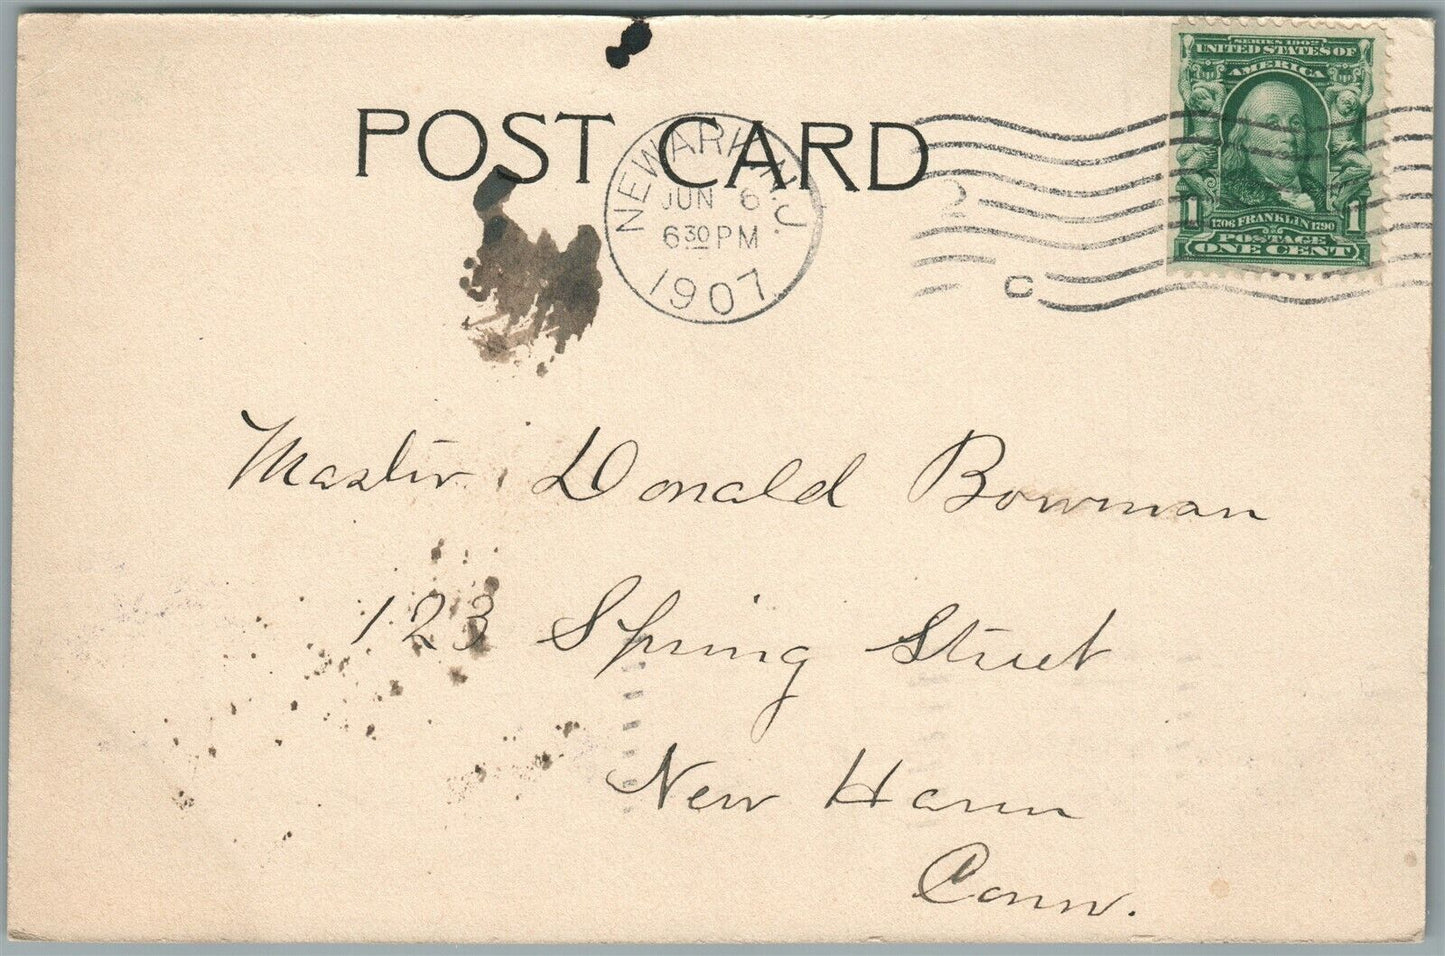 POST CARD
NEWARK, N.J.
JUN 6
6 30 PM
1907
2
C
SERIES 1902
UNITED STATES OF
AMERICA
1 1706 FRANKLIN 1790 1
POSTAGE
ONE CENT
Master Donald Bowman
123 Spring Street
New Haven
Conn.